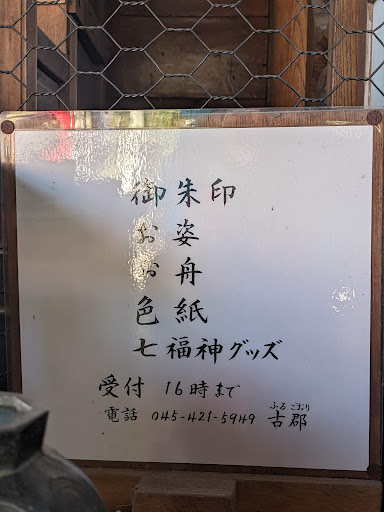 御朱印
お姿
お舟
色紙
七福神グッズ
受付 16時まで
ふる ごおり
電話 045-421-5949 古郡